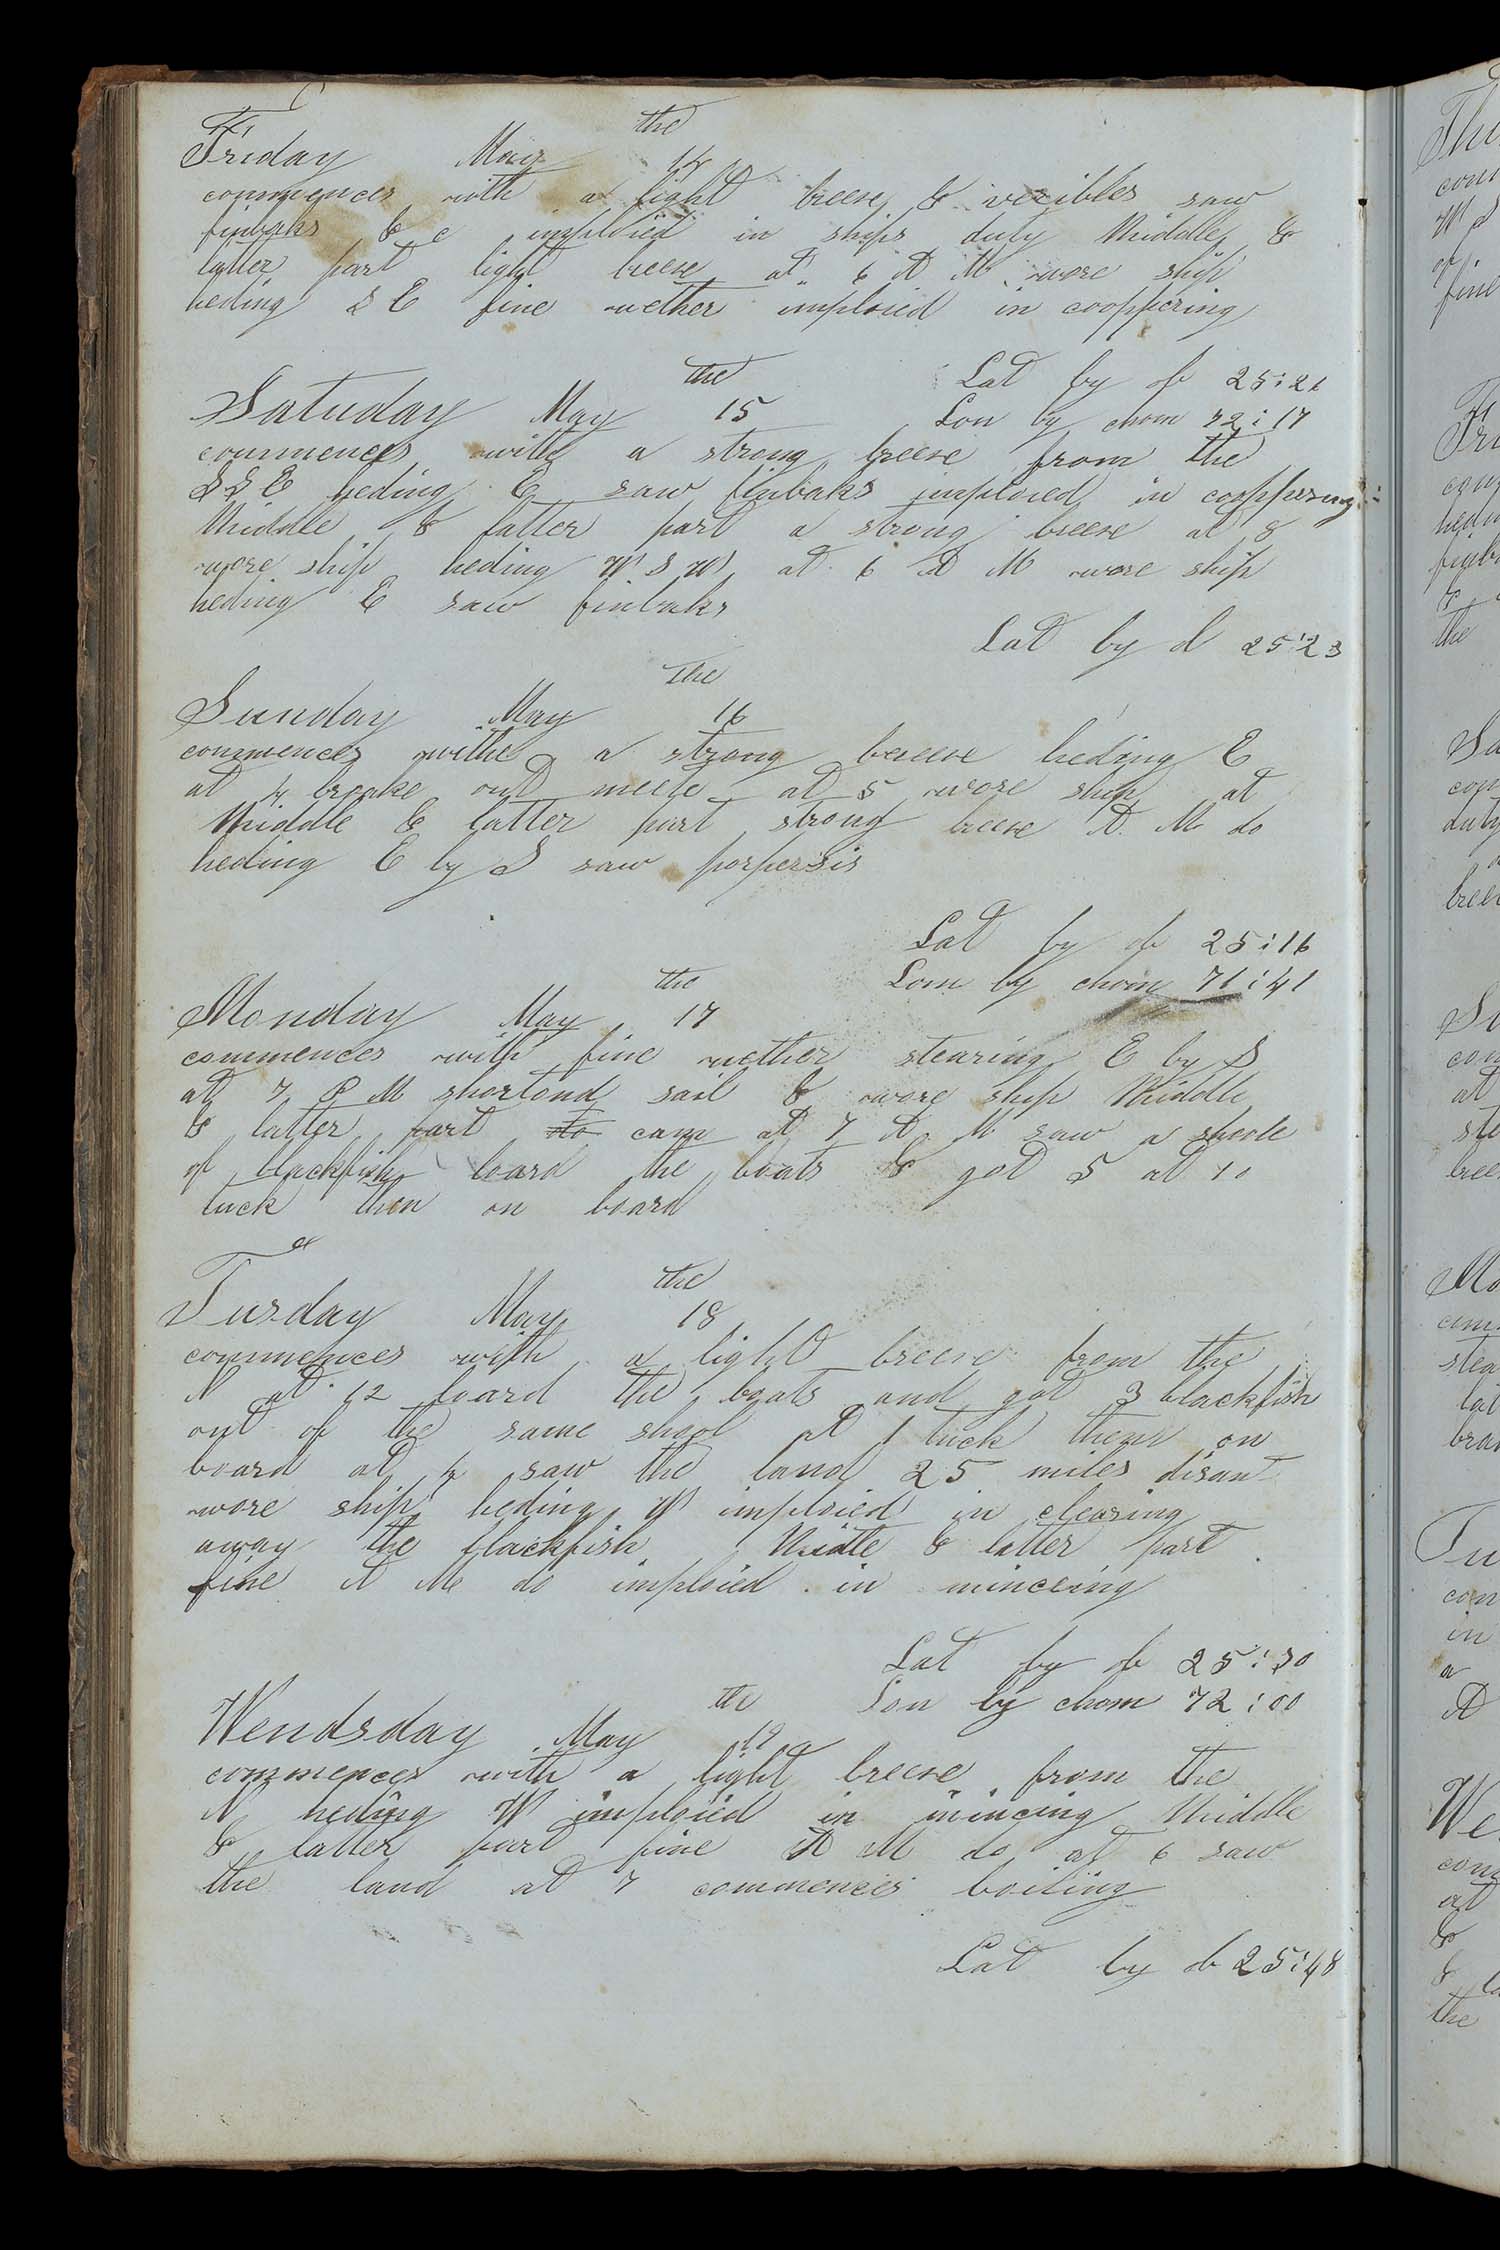 the
Friday May 14
commences with a light breese & vecibles saw
finbaks & c imploied in ships duty Middle &
latter part light breese at 6 A M wore ship
heding S E fine wether imploied in cooppering
Lat by ob 25:21
the
Satuday May 15 Lon by chom 72:17
commences with a strong breese from the
S S E heding E saw finbaks imploied in cooppering
Middle & latter part a strong breese at 8
wore ship heding W S W at 6 A M wore ship
heding E saw finbaks
Lat by d 25:23
the
Sunday May 16
commences withe a strong breese heding E
at 4 broake out meete at 5 wore ship at
Middle & latter part strong breese A. M do
heding E by S saw porpersis
Lat by ob 25:16
the Lom by chom 71:41
Monday May 17
commences with fine wether stearing E by S
at 7 P M shortond sail & wore ship Middle
& latter part do cam at 7 A. M saw a shoole
of blackfish loard the boats & got 5 at 10
tuck then on board
e
the
Tusday May 18
commences with a light breese from the
N at 12 loard the boats and got 3 blackfish
out of the same shool at 1 tuck them on
board at 4 saw the land 25 miles disant
wore ship heding W imploied in clearing
away the blackfish Midle & latter part
fine A M do imploied in minceing
Lat by ob 25:30
the Lon by chom 72:00
Wendsday May 19
commences with a light breese from the
N heding W imploied in mincing Middle
& latter part fine A M do at 6 saw
the land at 7 commences boiling
Lat by ob 25:48